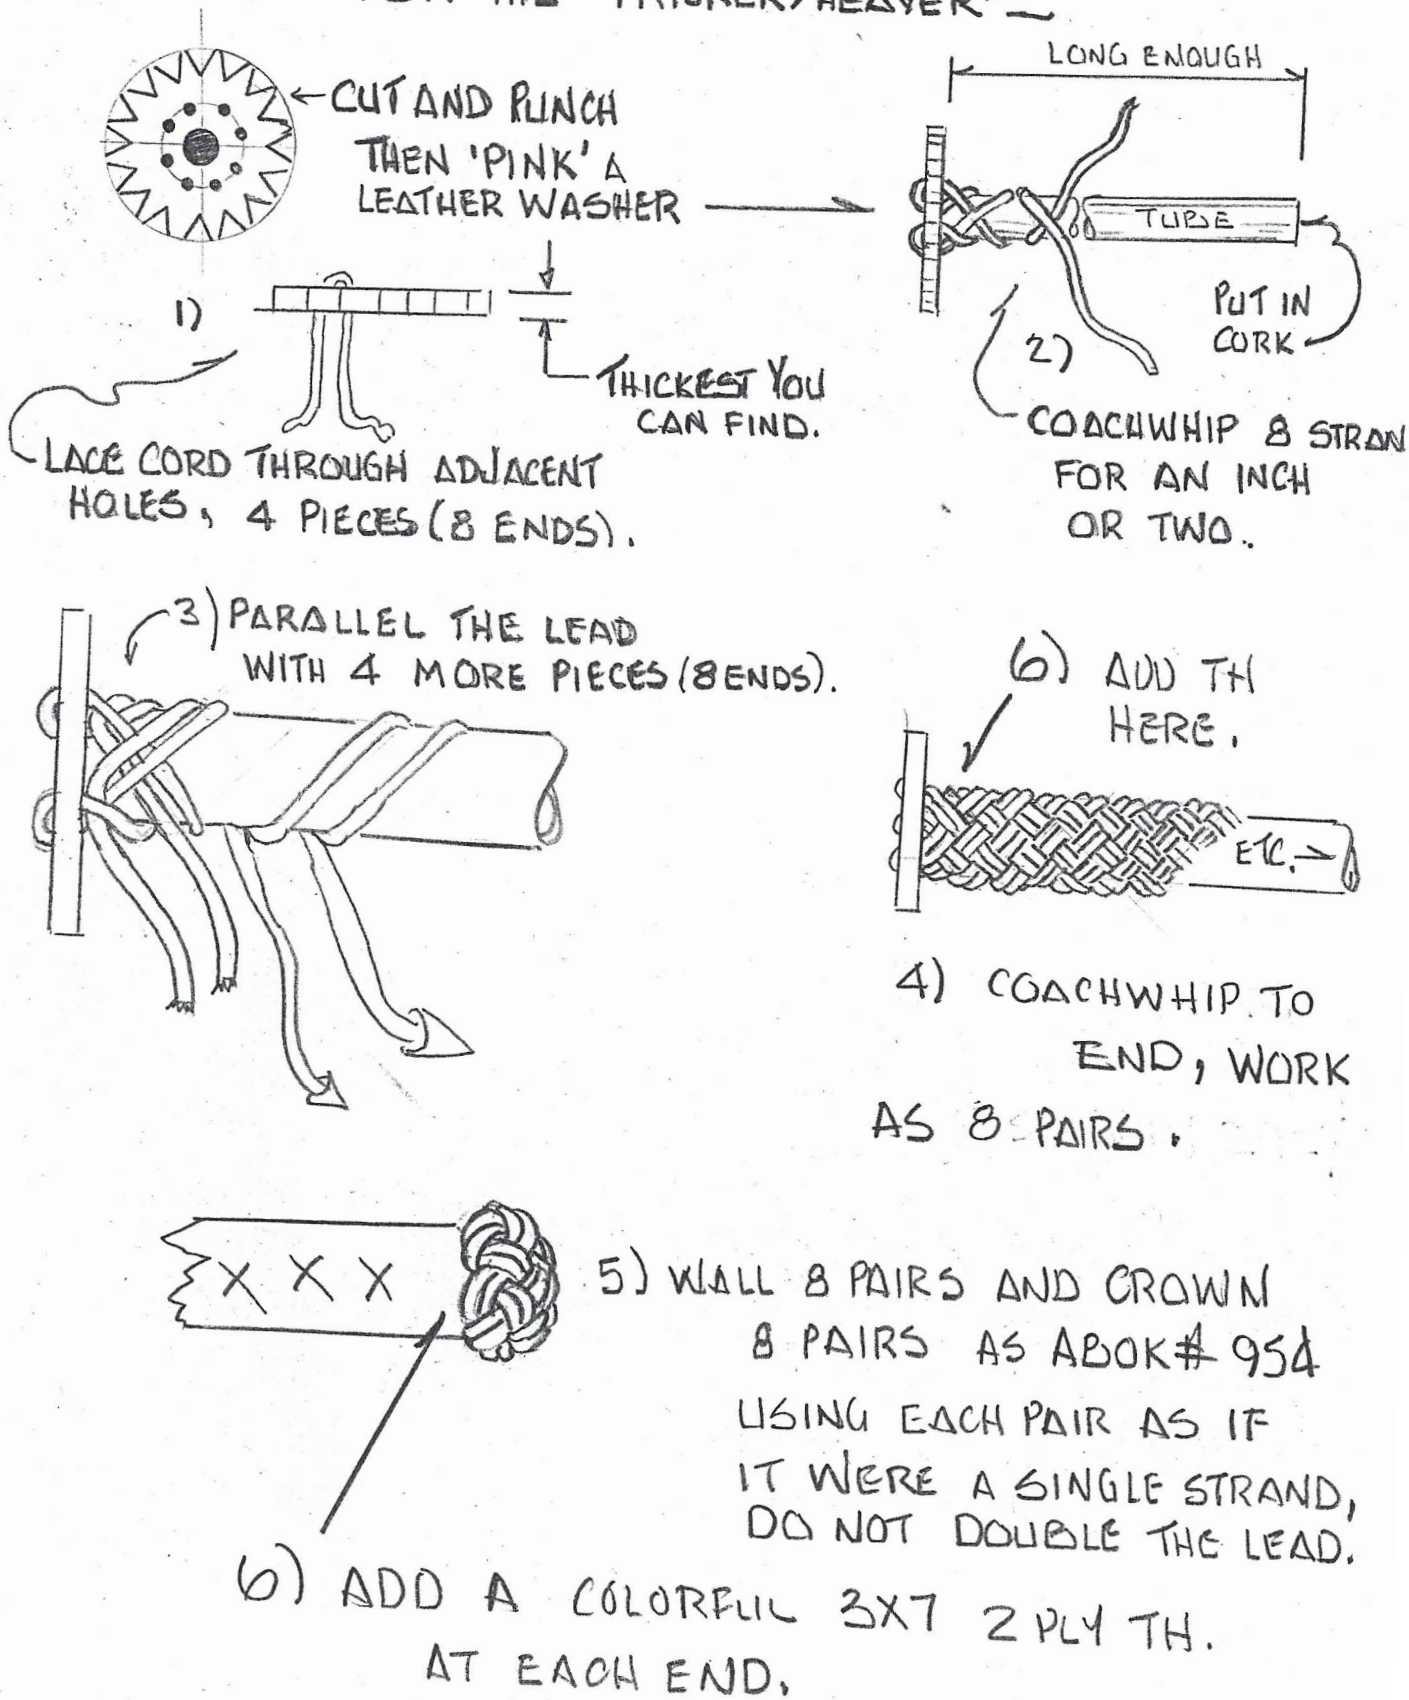 PRICKER/HEAVER
CUT AND PUNCH
THEN 'PINK' A
LEATHER WASHER
LONG ENOUGH
TUBE
PUT IN
CORK
1)
THICKEST YOU
CAN FIND.
LACE CORD THROUGH ADJACENT
HOLES, 4 PIECES (8 ENDS).
2)
COACHWHIP 8 STRAN
FOR AN INCH
OR TWO.
3) PARALLEL THE LEAD
WITH 4 MORE PIECES (8 ENDS).
6) ADD TH
HERE.
ETC.
4) COACHWHIP TO
END, WORK
AS 8 PAIRS.
X X X
5) WALL 8 PAIRS AND CROWN
8 PAIRS AS ABOK# 954
USING EACH PAIR AS IF
IT WERE A SINGLE STRAND,
DO NOT DOUBLE THE LEAD.
6) ADD A COLORFUL 3X7 2 PLY TH.
AT EACH END.